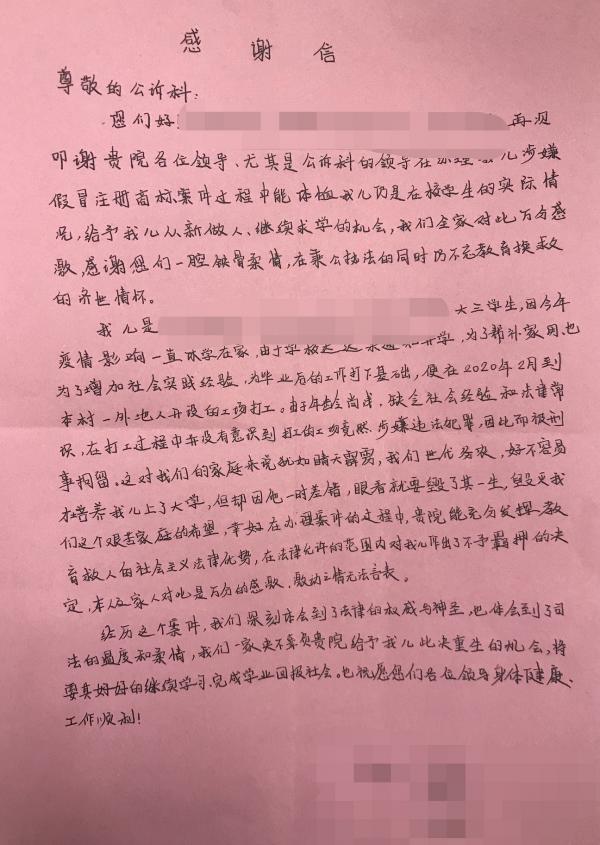 感谢信
尊敬的公诉科：
您们好 再次
叩谢贵院各位领导、尤其是公诉科的领导在办理我儿涉嫌
假冒注册商标案件过程中能体恤我儿仍是在校学生的实际情
况，给予我儿从新做人、继续求学的机会，我们全家对此万分感
激，感谢您们一腔铁骨柔情，在秉公执法的同时仍不忘教育挽救
的济世情怀。
我儿是 大三学生，因今年
疫情影响一直休学在家，由于学校 开学，为了帮补家用、也
为了增加社会实践经验，为毕业后的工作打下基础，便在2020年2月到
本村一外地人开设的工场打工。由于年龄尚浅，缺乏社会经验和法律常
识，在打工过程中并没有意识到打工的工场竟然涉嫌违法犯罪，因此而被刑
事拘留。这对我们的家庭来说犹如晴天霹雳，我们世代务农，好不容易
才培养我儿上了大学，但却因他一时差错，眼看就要毁了其一生，毁灭我
们这个艰苦家庭的希望，幸好在办理案件的过程中，贵院能充分发挥教
育救人的社会主义法律优势，在法律允许的范围内对我儿作出了不予羁押的决
定，本人及家人对此是万分的感激、激动之情无法言表。
经历这个案件，我们深刻体会到了法律的权威与神圣，也体会到了司
法的温度和柔情，我们一家决不辜负贵院给予我儿此次重生的机会，将
要其好好的继续学习、完成学业回报社会。也祝愿您们各位领导身体健康、
工作顺利！